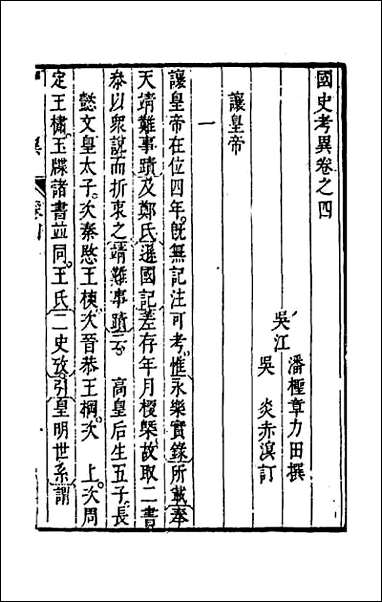 國史考異卷之四
吳江
潘檉章力田撰
吳炎赤溟訂
讓皇帝
一
讓皇帝在位四年。旣無記注可考。惟永樂實錄所載奉
天靖難事蹟及鄭氏遜國記差存年月梗槩。故取二書
叅以衆說而折衷之。靖難事蹟云 高皇后生五子。長
懿文皇太子。次秦愍王樉。次晉恭王棡。次 上。次周
定王橚。玉牒諸書並同。王氏二史攷引皇明世系謂